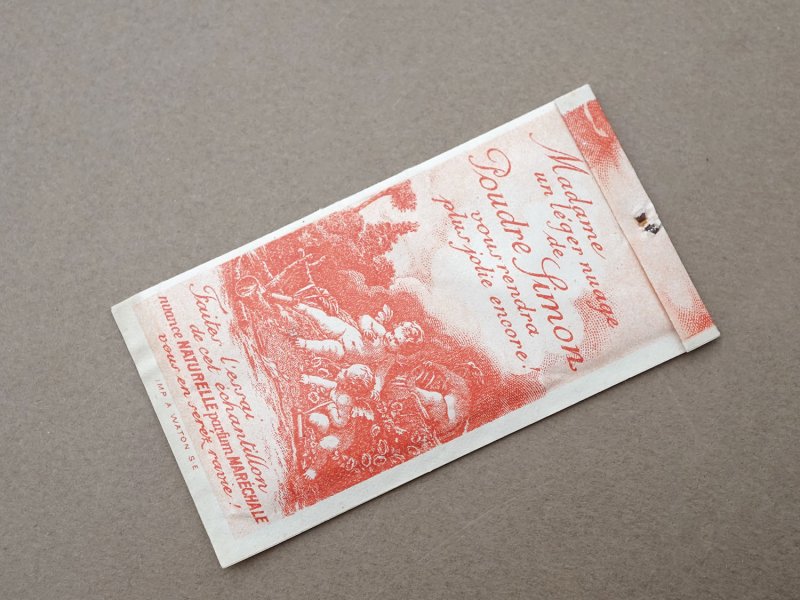 Madame
un léger nuage
de
Poudre Simon
vous rendra
plus jolie encore!
Faites l'essai
de cet échantillon
nuance NATURELLE parfum MARÉCHALE
vous en serez ravie!
IMP. A. WATON S.E